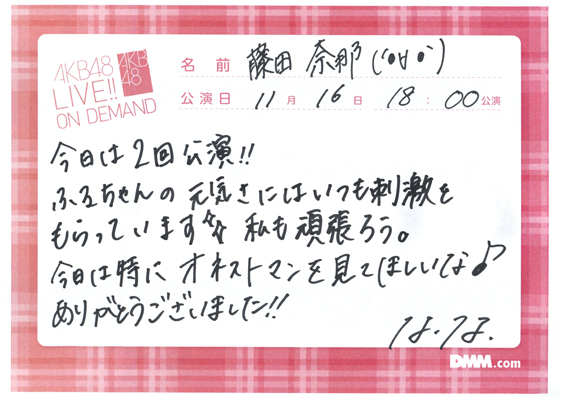 AKB48
LIVE!!
ON DEMAND
AKB
48
名前 藤田 奈那 (´θ∀θ`)
公演日 11月16日 18:00公演
今日は2回公演!!
ふぅちゃんの元気さにはいつも刺激を
もらっています 私も頑張ろう。
今日は特にオネストマンを見てほしいな♪
ありがとうございました!!
なぁなぁ.
DMM.com